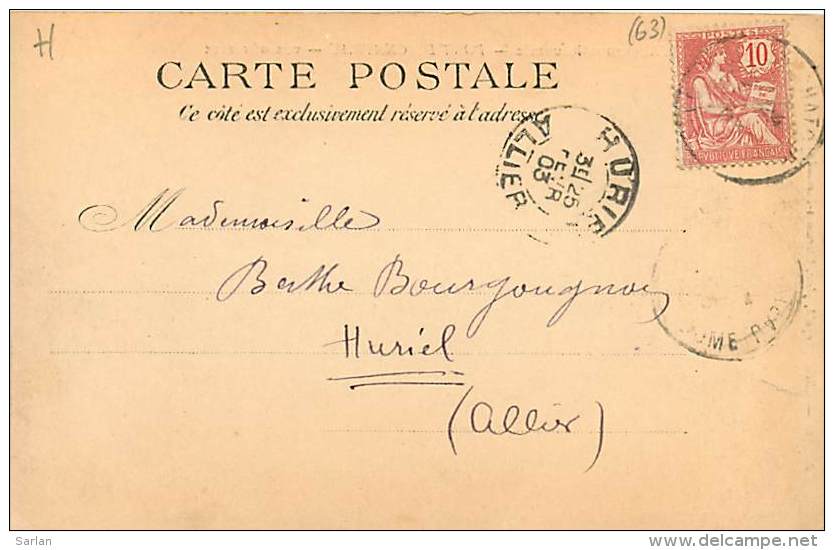 H
(63)
POSTES
10
CARTE POSTALE
Ce côté est exclusivement réservé à l'adresse
HURIEL
3E/25
FEVR
03
ALLIER
Mademoiselle
Berthe Bourgougnon
Huriel
(Allier)
DOME
Sarlan
delcampe.net